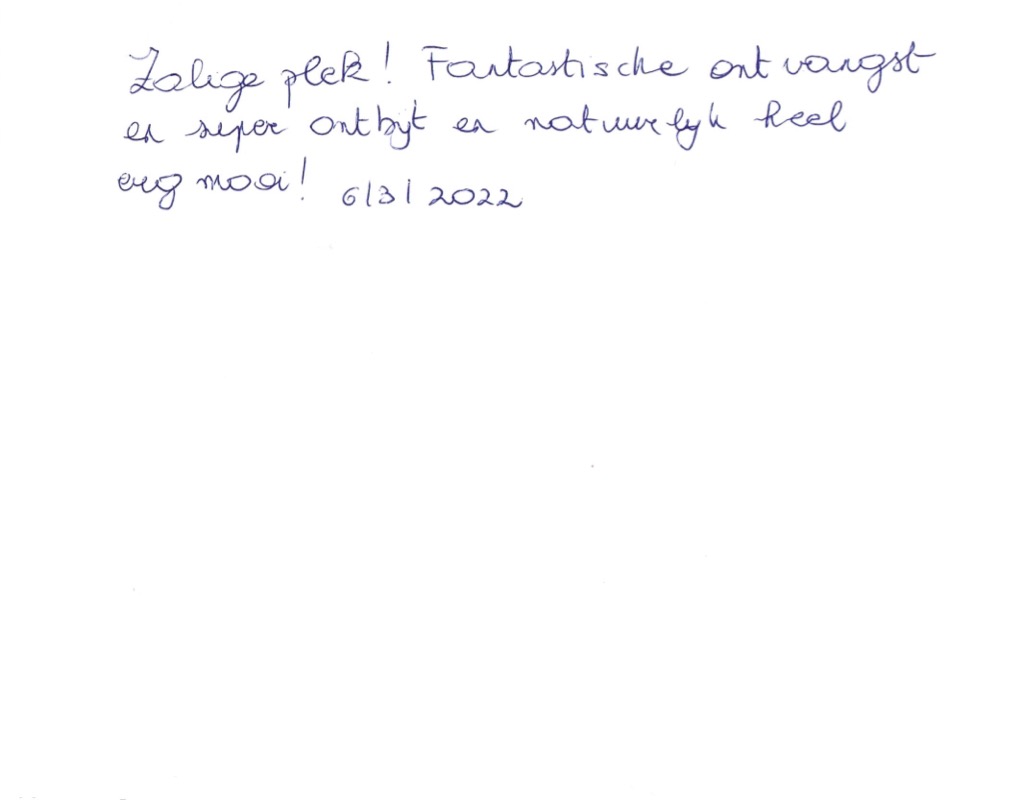 Zalige plek! Fantastische ontvangst
en super ontbijt en natuurlijk heel
erg mooi! 6/3/2022